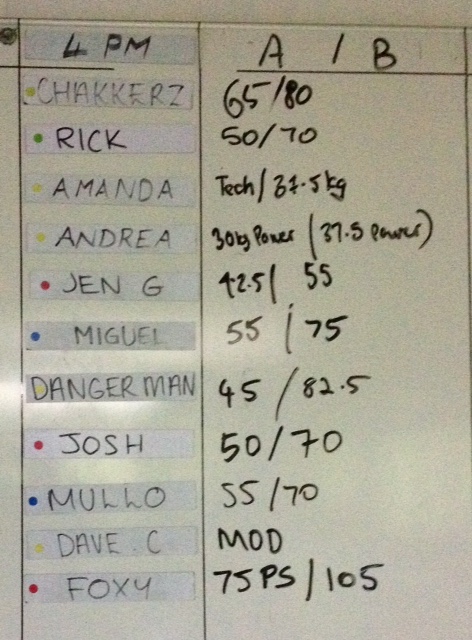 4 PM A / B
CHAKKERZ 65/80
RICK 50/70
AMANDA Tech/37.5kg
ANDREA 30kg Power (37.5 power)
JEN G 42.5/ 55
MIGUEL 55 / 75
DANGERMAN 45 / 82.5
JOSH 50/70
MULLO 55/70
DAVE.C MOD
FOXY 75PS/105